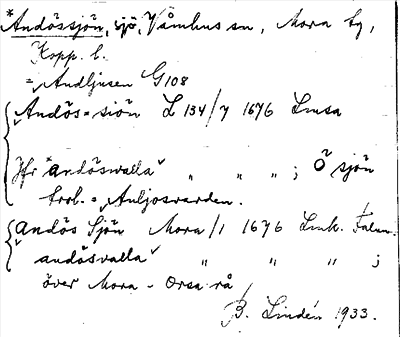 *Andössjön, sjö, Våmhus sn, Mora tg,
Kopp. l.
= Andljusen G108
"Andös=siön L 134/7 1676 Lmsa
Jfr "andöswalla" " " " ; Ö sjön
trol. = Anljosvarden.
"Andös Sjön Mora/1 1676 Lmk. Falun.
"andösvalla" " " " ;
över Mora - Orsa rå
B. Lindén 1933.